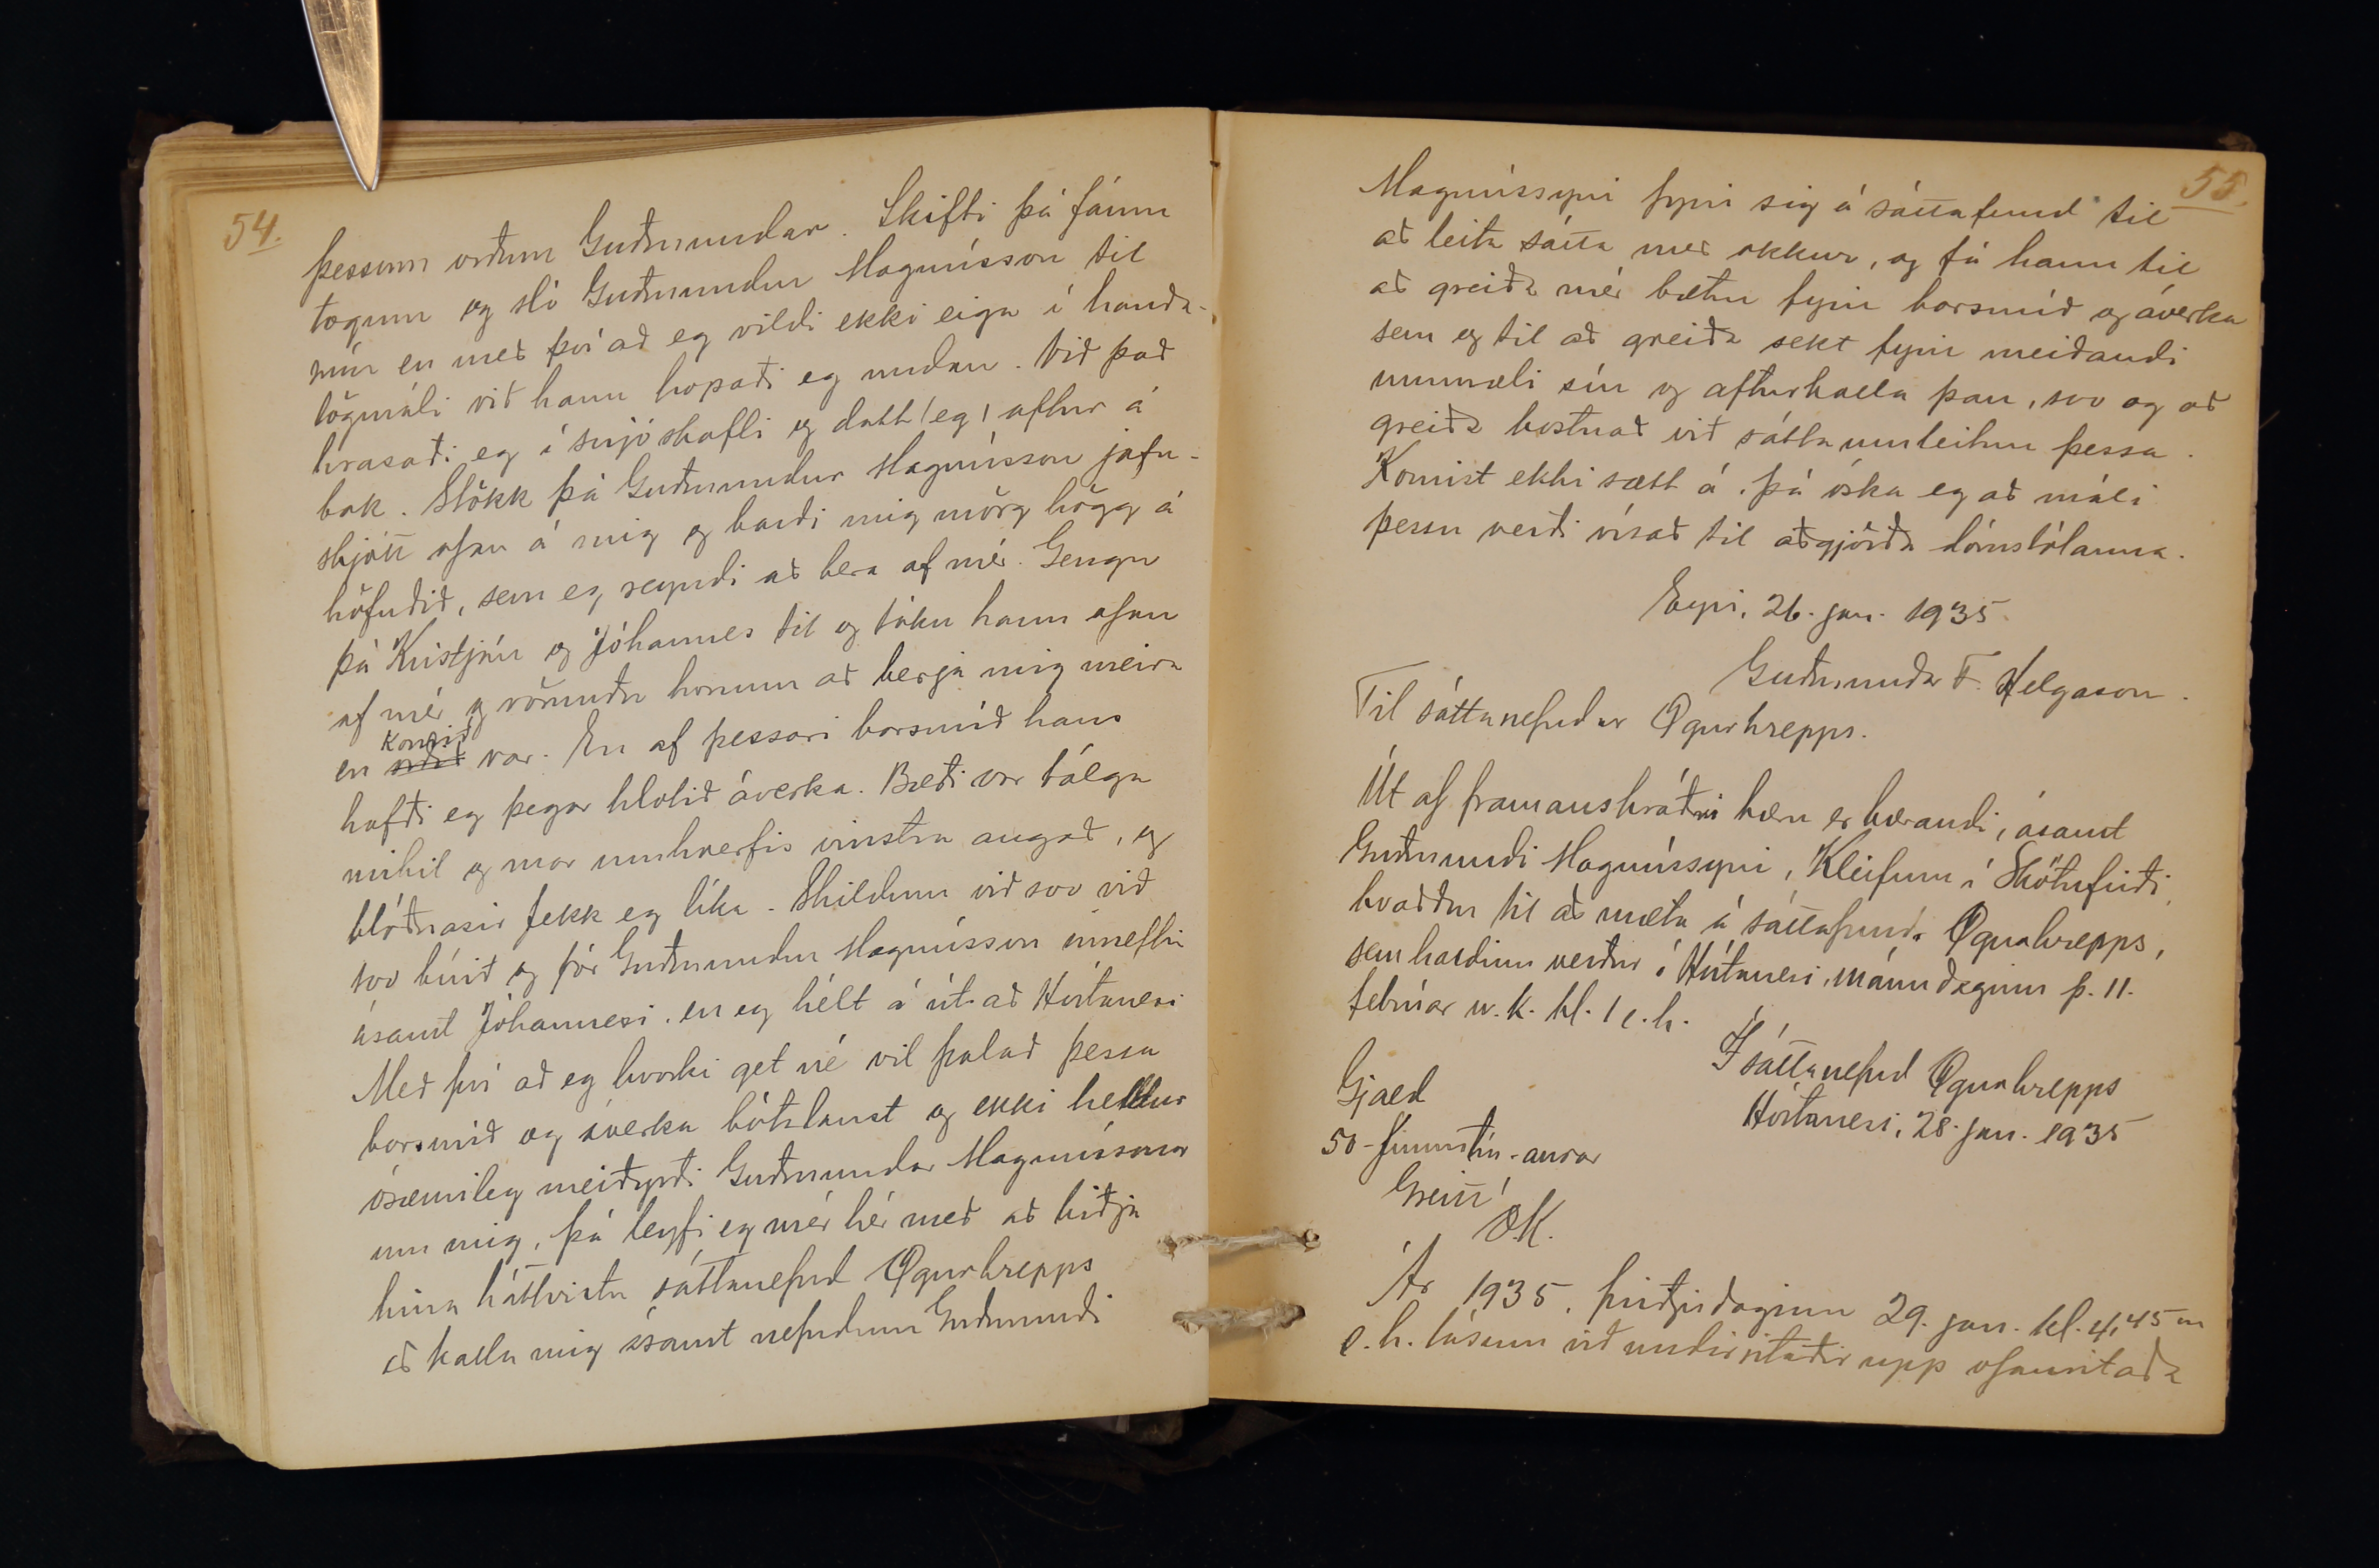 54.
þessum orðum Guðmundar. Skifti þá fáum
togum og sló Guðmundur Magnússon til
mín en með því að eg vildi ekki eiga í handa-
lögmáli við hann hopaði eg undan. Við það
hrasaði eg í snjóskafli og datt (eg) aftur á
bak. Stökk þá Guðmundur Magnússon jafn-
skjótt ofan á mig og barði mig mörg högg á
höfuðið, sem eg reyndi að bera af mér. Gengu
þá Kristján og Jóhannes til og tóku hann ofan
af mér og vörnuðu honum að berja mig meira
komið
en orðið var. En af þessari barsmíð hans
hafði eg þegar hlotið áverka. Bæði var bólga
mikil og mar umhverfis vinstra augað, og
blóðnasir fekk eg líka. Skildum við svo við
svo búið og fór Guðmundur Magnússon inneftir
ásamt Jóhannesi, en eg hélt á út að Hvítanesi
Með því að eg hvorki get né vil þolað þessa
barsmíð og áverka bótalaust og ekki heldur
ósæmileg meiðyrði Guðmundar Magnússonar
um mig, þá leyfi eg mér hér með að biðja
hina háttvirtu sáttanefnd Ögurhrepps
að kalla mig ásamt nefndum Guðmundi
55.
Magnússyni fyrir sig á sáttafund til
að leita sátta með okkur, og fá hann til
að greiða mér bætur fyrir barsmíð og áverka
sem og til að greiða sekt fyrir meiðandi
ummæli sín og afturkalla þau, svo og að
greiða kostnað við sáttaumleitun þessa.
Komist ekki sætt á, þá óska eg að máli
þessu verði vísað til aðgjörða dómstólanna.
Eyri, 26. jan. 1935
Guðmundur F. Helgason.
Til sáttanefndar Ögurhrepps.
Út af framanskráðri kæru er kærandi, ásamt
Guðmundi Magnússyni, Kleifum í Skötufirði,
kvaddur til að mæta á sáttafundi Ögurhrepps,
sem haldinn verður í Hvítanesi, mánudaginn þ. 11.
febrúar n.k. kl. 1 e.h.
Í sáttanefnd Ögurhrepps
Hvítanesi, 28. jan. 1935
Gjald
50 - fimmtíu - aurar
Greitt
Ó.K.
Ár 1935, þriðjudaginn 29. jan. kl. 4,45 m
e.h. lásum við undirritaðir upp ofanritaða